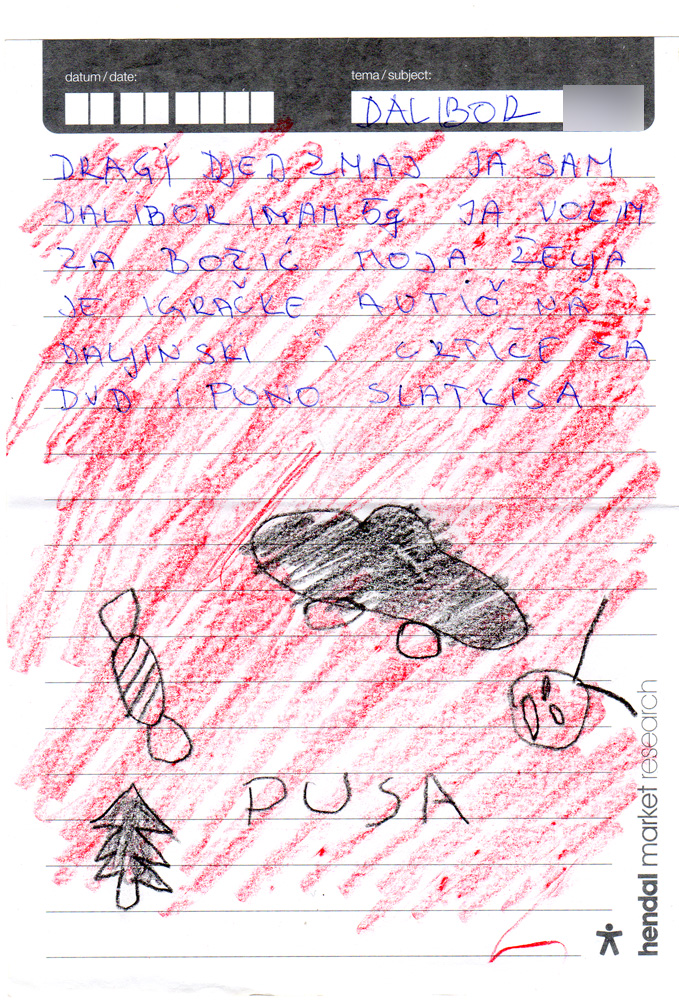 datum / date:
tema / subject:
DALIBOR
DRAGI DJED ZMAJ JA SAM
DALIBOR IMAM 5g JA VOLIM
ZA BOŽIĆ MOJA ŽELJA
JE IGRAČKE AUTIČ NA
DALJINSKI I CRTIČE ZA
DVD I PUNO SLATKIŠA
PUSA
hendal market research